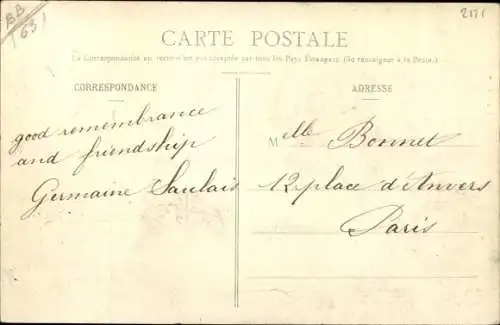 BB
631
2171
CARTE POSTALE
La Correspondance au recto n'est pas acceptée par tous les Pays Étrangers. (Se renseigner à la Poste.)
CORRESPONDANCE
good remembrance
and friendship
Germaine Saulais
ADRESSE
Mlle Bonnet
12 place d'Anvers
Paris